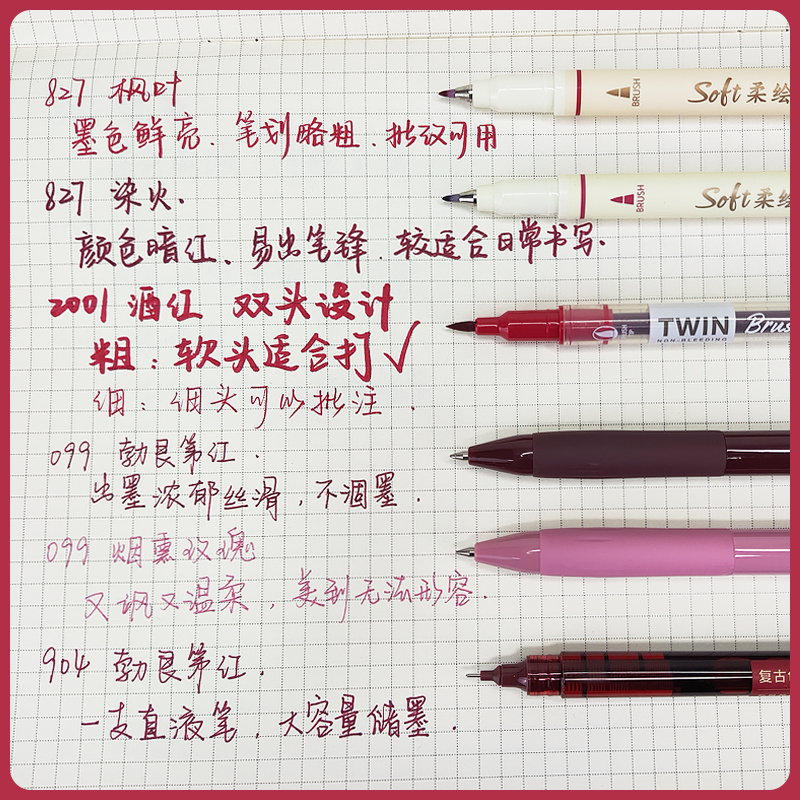 827 枫叶
墨色鲜亮、笔划略粗、批纹可用
BRUSH
Soft 柔绘
827 染火.
颜色暗红、易出笔锋、较适合日常书写.
BRUSH
Soft 柔绘
2001 酒红 双头设计
粗：软头适合打√
TWIN
NON-BLEEDING
Brus
细：细头可以批注.
099 勃艮第红.
出墨浓郁丝滑，不洇墨.
099 烟熏玫瑰
又飒又温柔，美到无法形容.
904 勃艮第红.
复古
一支直液笔，大容量储墨.